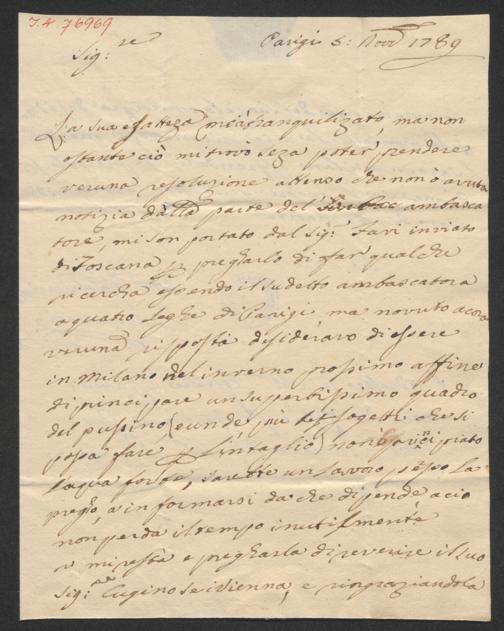 I.N. 76969
Sig:re
Parigi 5: Novb 1789
La sua esatteza mi à tranquilizato, ma non
ostante ciò mi trovo seza poter prendere
veruna resoluzione atteso che non ò avuta
notizia dalla parte del ambasca
tore, mi son portato dal Sig: Favi inviato
di Toscana pregharlo di far qualche
ricercha essendo il sudetto ambascatora
a quatro leghe di Parigi ma no vuto acora
veruna risposta desideravo di essere
in Milano nel inverno prossimo affine
di principare un superbissimo quadro
del pussino (e un de più bei sogetti che si
possa fare Lintaglio) non
l'aqua forte, sarebe un lavoro perso La
pregho, a informarsi da che dipende acio
non perda il tempo inutilmente
mi resta e pregharla di reverire il suo
Sig: Cugino se i Vienna, e ringraziandola